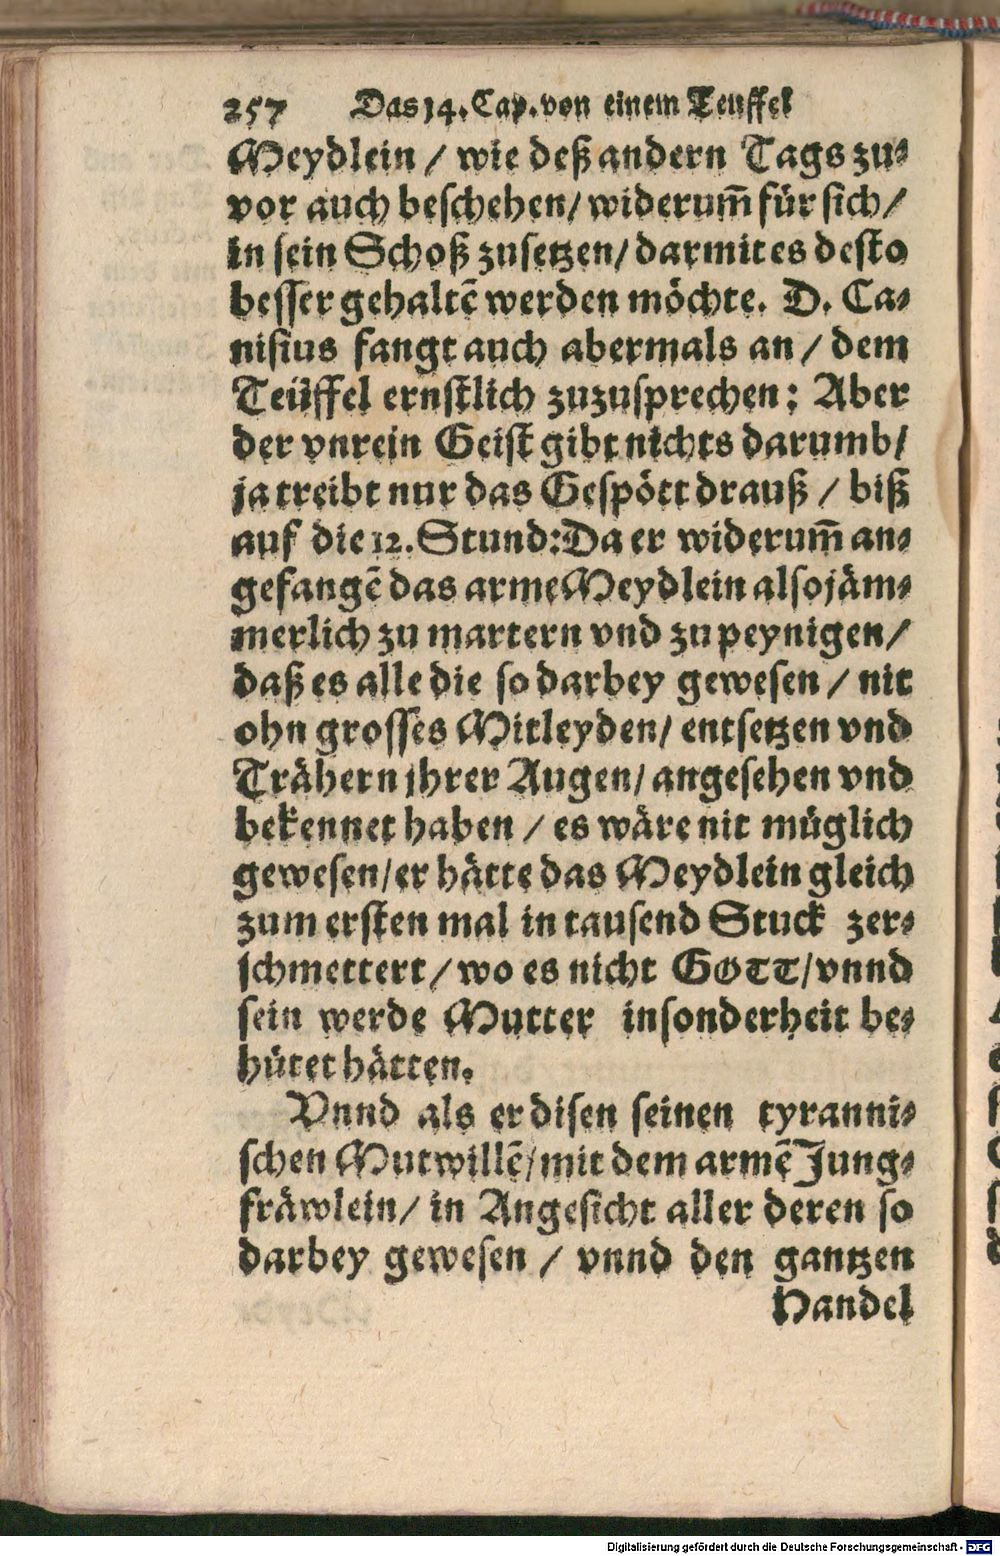 257 Das 14. Cap. von einem Teuffel
Meydlein / wie deß andern Tags zu⸗
vor auch beschehen/ widerum̄ für sich/
in sein Schoß zusetzen/ darmit es desto
besser gehaltē werden möchte. D. Ca⸗
nisius fangt auch abermals an / dem
Teüffel ernstlich zuzusprechen: Aber
der vnrein Geist gibt nichts darumb/
ja treibt nur das Gespött drauß / biß
auf die 12. Stund: Da er widerum̄ an⸗
gefangē das arme Meydlein also jäm⸗
merlich zu martern vnd zu peynigen/
daß es alle die so darbey gewesen / nit
ohn grosses Mitleyden/ entsetzen vnd
Trähern jhrer Augen/ angesehen vnd
bekennet haben / es wäre nit müglich
gewesen/ er hätte das Meydlein gleich
zum ersten mal in tausend Stuck zer⸗
schmettert/ wo es nicht GOTT/ vnnd
sein werde Mutter insonderheit be⸗
hütet hätten.
Vnnd als er disen seinen tyranni⸗
schen Mutwillē/ mit dem armē Jung⸗
fräwlein/ in Angesicht aller deren so
darbey gewesen / vnnd den gantzen
Handel
Digitalisierung gefördert durch die Deutsche Forschungsgemeinschaft - DFG